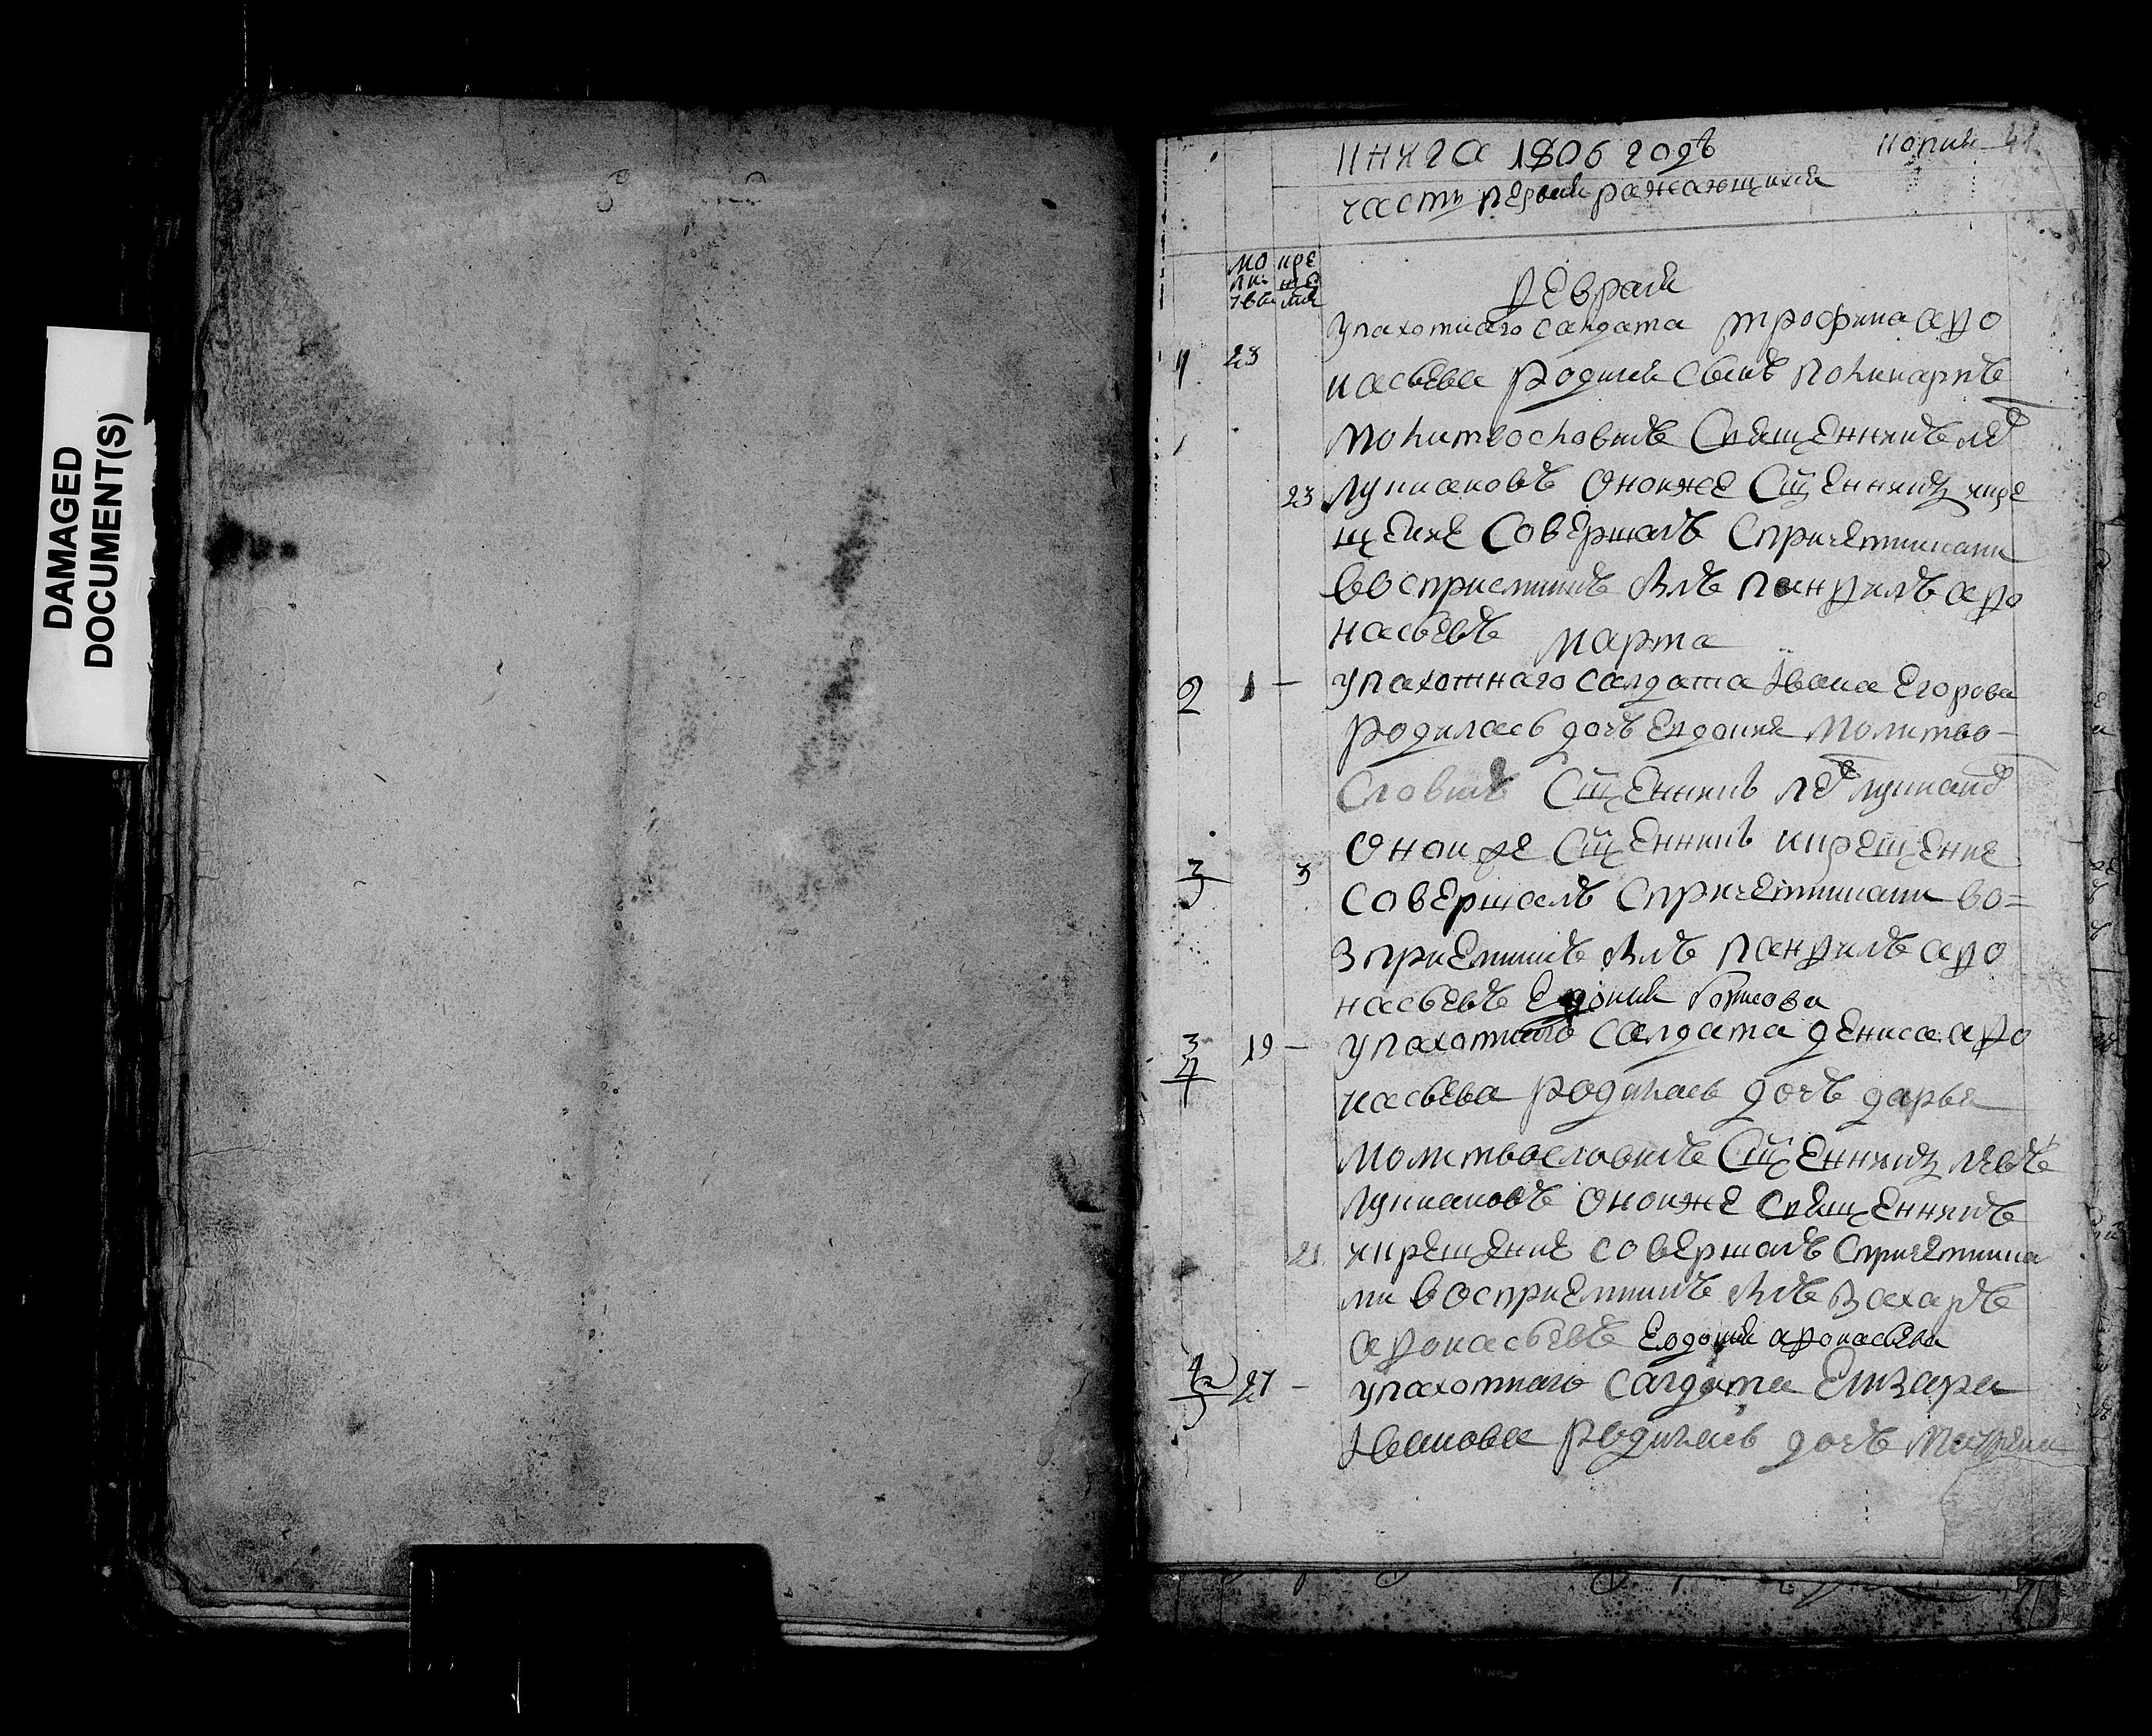 DAMAGED
DOCUMENT(S)
книга 1806 годъ копия
часть первая ражающихся
мо кре
ли ще
тве ния
февраля
1 23 упахотнаго салдата трофима афо
насьева родился сынъ поликарпъ
молитвословилъ Священникъ ле
23 лукиановъ онойже Сщенникъ кре
щение Совершалъ Спричетниками
восприемникъ былъ панфилъ афо
насьевъ марта
2 1 – упахотнаго салдата Iвана Егорова
родилась дочь Евдокия молитво-
Словилъ Сщенникъ ле лукиано
онойже Сщенникъ крещение
3 3 совершалъ Спричетниками во=
зприемникъ былъ панфилъ афо
насьевъ Евдокия
3 4 19 – упахотнаго салдата дениса афо
насьева родилась дочь дарья
молитвословилъ Сщенникъ левъ
лукиановъ онойже священникъ
21 крещение совершалъ Спричетника
ми восприемникъ былъ Захаръ
афонасьевъ Евдокия афонасьева
4 27 – упахотнаго салдата Елизара
Iванова родилась дочь